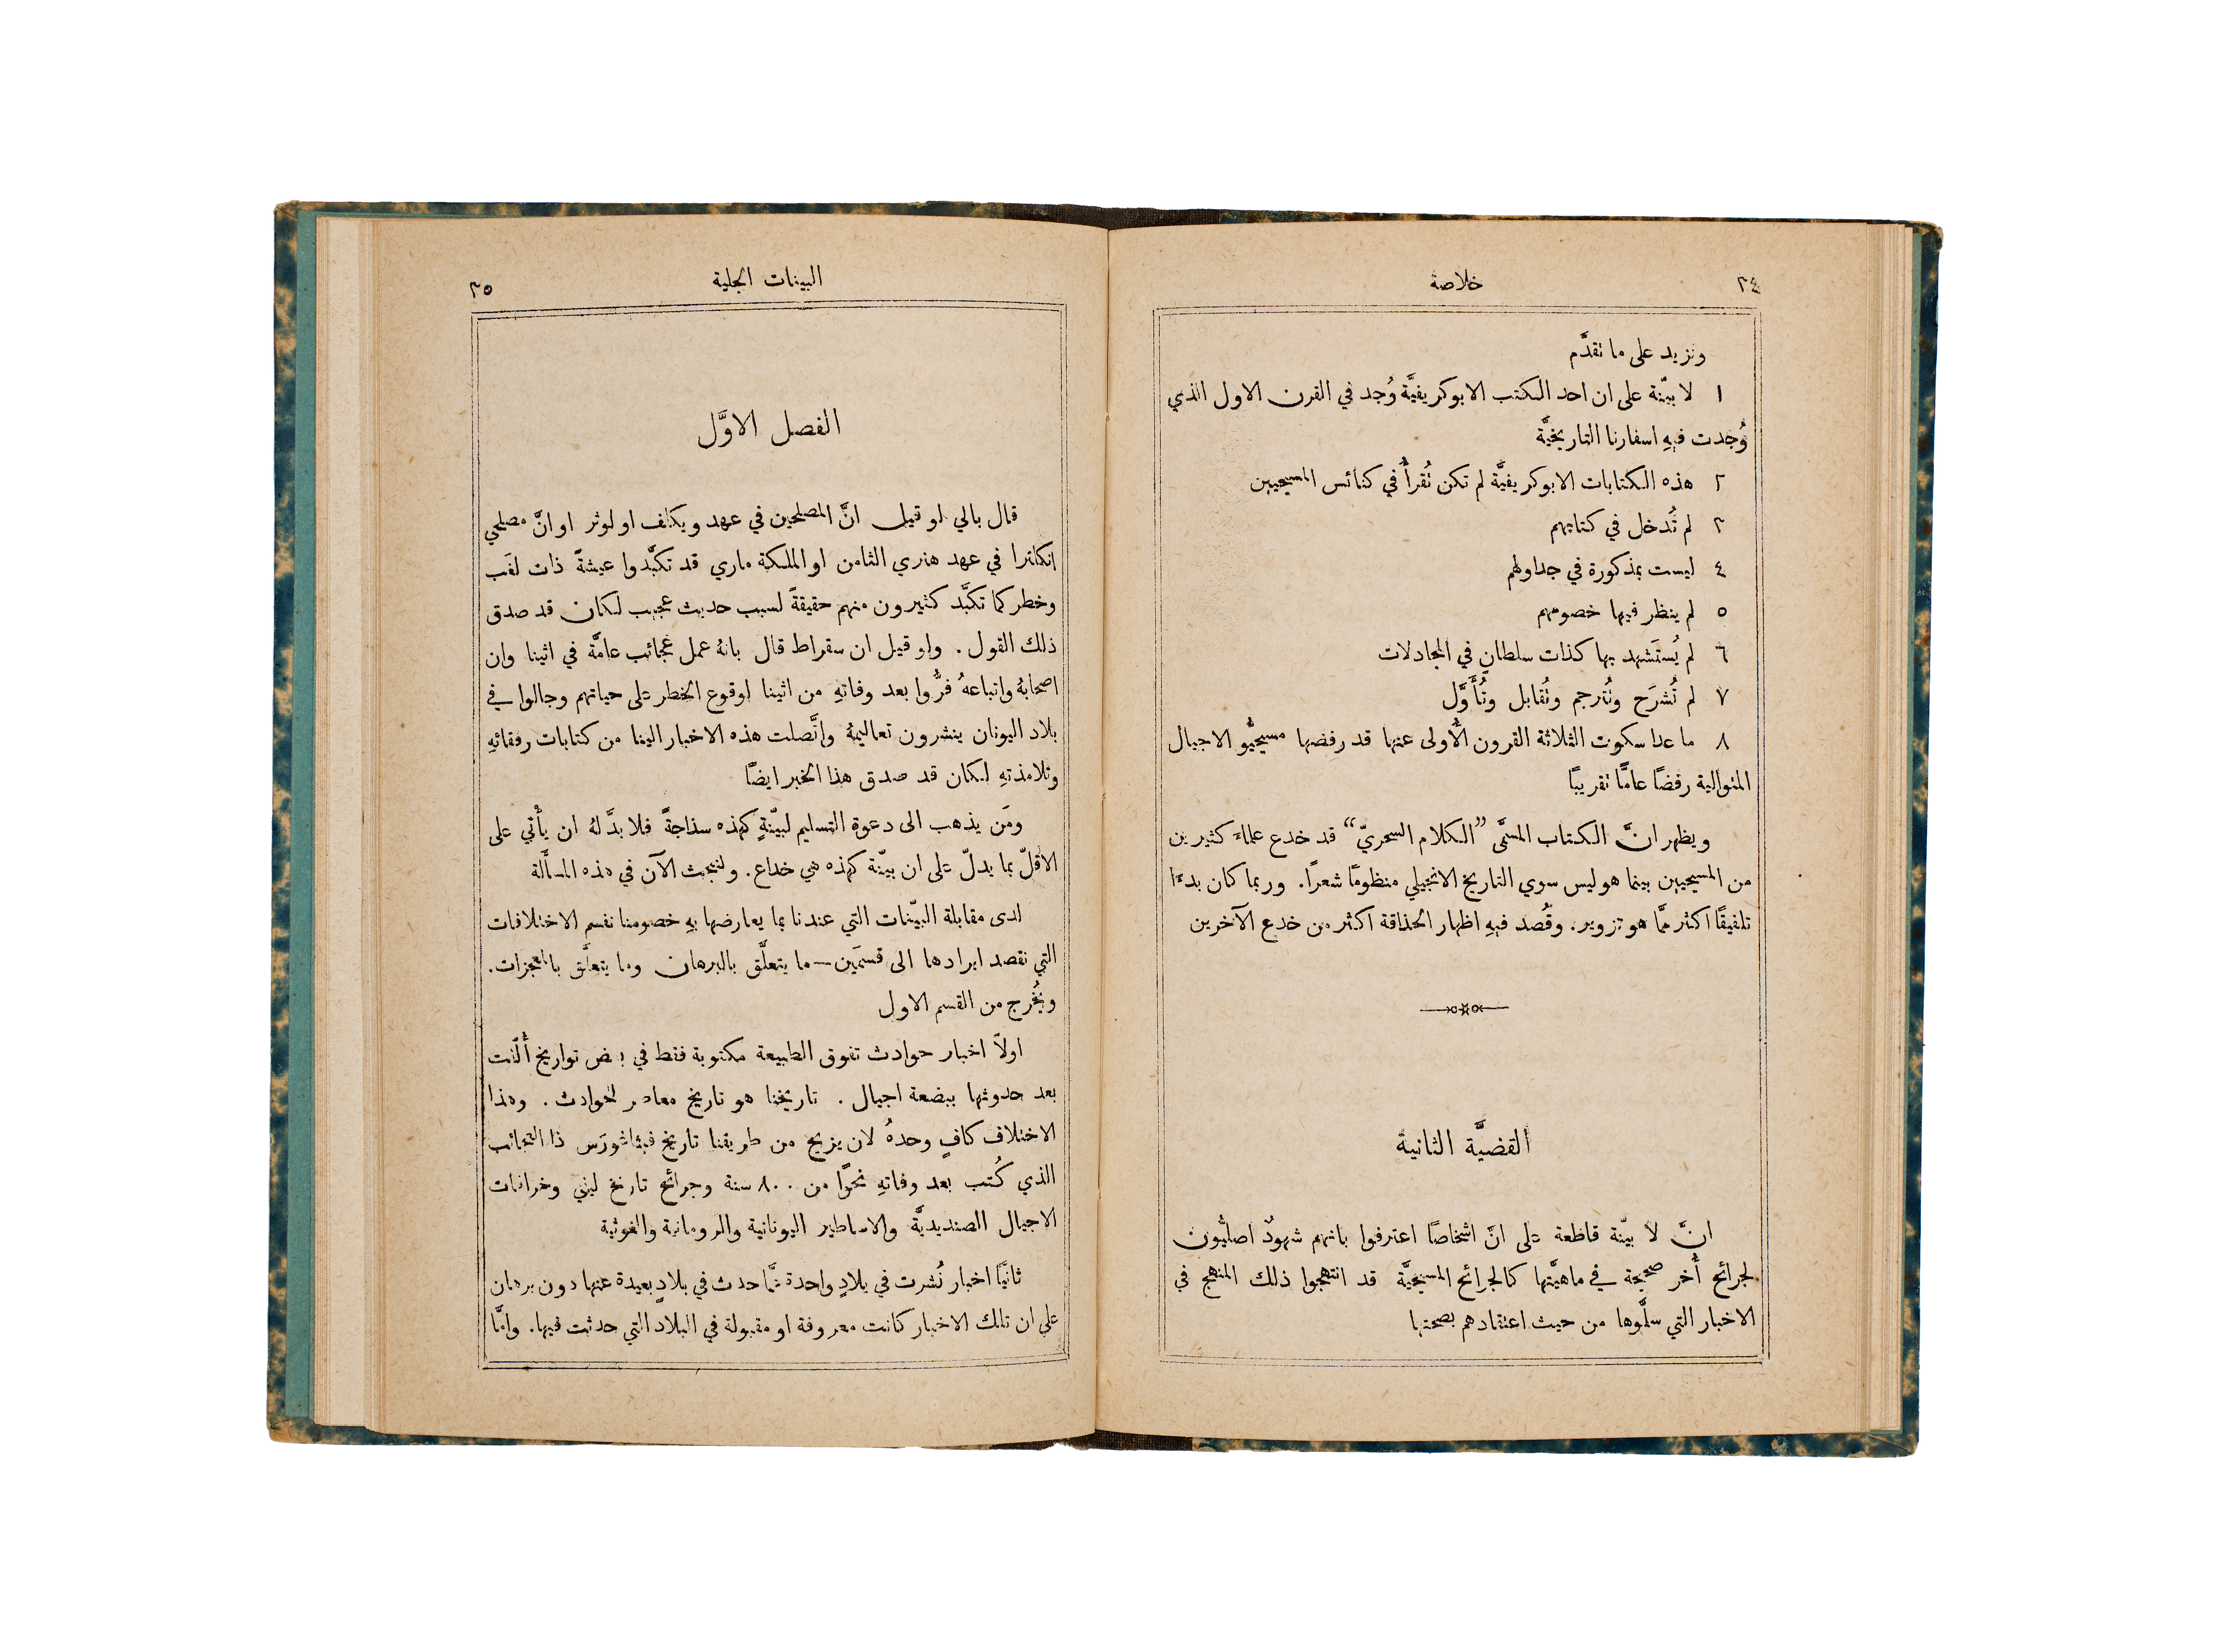 ٣٤
خلاصة
ونزيد على ما تقدَّم
١ لا بيّنة على ان احد الكتب الابوكريفيَّة وُجد في القرن الاول الذي
وُجدت فيهِ اسفارنا التاريخيَّة
٢ هذه الكتابات الابوكريفيَّة لم تكن تُقرأُ في كنائس المسيحيين
٣ لم تُدخل في كتابهم
٤ ليست بمذكورة في جداولهم
٥ لم ينظر فيها خصومهم
٦ لم يُستَشهد بها كذات سلطانٍ في المجادلات
٧ لم تُشرَح وتُترجم وتُقابل وتُأَوَّل
٨ ما عدا سكوت الثلاثة القرون الأُولى عنها قد رفضها مسيحيُّو الاجيال
المتوالية رفضًا عامًّا تقريبًا
ويظهر انَّ الكتاب المسمَّى ”الكلام السحريّ“ قد خدع علماءَ كثيرين
من المسيحيين بينما هو ليس سوي التاريخ الانجيلي منظومًا شعرًا. وربما كان بدءًا
تلفيقًا اكثر ممَّا هو تزوير. وقُصد فيهِ اظهار الحذاقة اكثر من خدع الآخرين
القضيَّة الثانية
انَّ لا بيّنة قاطعة على انَّ اشخاصًا اعترفوا بانهم شهودٌ اصليُّون
لجرائح أُخر صحيحة في ماهيَّتها كالجرائح المسيحيَّة قد انتهجوا ذلك المنهج في
الاخبار التي سلَّموها من حيث اعتقادهم بصحتها
البينات الجلية
٣٥
الفصل الاوَّل
قال بالي لو قيل انَّ المصلحين في عهد ويكلف او لوثر او انَّ مصلحي
انكلترا في عهد هنري الثامن او الملكة ماري قد تكبَّدوا عيشةً ذات لغَب
وخطر كما تكبَّد كثيرون منهم حقيقةً لسبب حديث عجيب لكان قد صدق
ذلك القول . ولو قيل ان سقراط قال بانهُ عمل عجائب عامَّة في اثينا وان
اصحابهُ واتباعهُ فرُّوا بعد وفاتهِ من اثينا لوقوع الخطر على حياتهم وجالوا في
بلاد اليونان ينشرون تعاليمهُ واتَّصلت هذه الاخبار الينا من كتابات رفقائهِ
وتلامذتهِ لكان قد صدق هذا الخبر ايضًا
ومَن يذهب الى دعوة التسليم لبيّنةٍ كهذه سذاجةً فلا بدَّ لهُ ان يأْتي على
الاقلّ بما يدلّ على ان بيّنة كهذه هي خداع. ولنبحث الآن في هذه المسأَلة
لدى مقابلة البيّنات التي عندنا بما يعارضها بهِ خصومنا نقسم الاختلافات
التي نقصد ايرادها الى قسمَين — ما يتعلَّق بالبرهان وما يتعلَّق بالمعجزات.
ويُخرج من القسم الاول
اولاً اخبار حوادث تفوق الطبيعة مكتوبة فقط في بعض تواريخ أُلّفت
بعد حدوثها ببضعة اجيال . تاريخنا هو تاريخ معاصر لحوادث . وهذا
الاختلاف كافٍ وحدهُ لان يزيح من طريقنا تاريخ فيثاغورَس ذا العجائب
الذي كُتب بعد وفاتهِ نحوًا من ٨٠٠ سنة وجرائح تاريخ ليني وخرافات
الاجيال الصنديديَّة والاساطير اليونانية والرومانية والغوثية
ثانيًا اخبار نُشرت في بلادٍ واحدة ممَّا حدث في بلادٍ بعيدة عنها دون برهان
على ان تلك الاخبار كانت معروفة او مقبولة في البلاد التي حدثت فيها. وامَّا